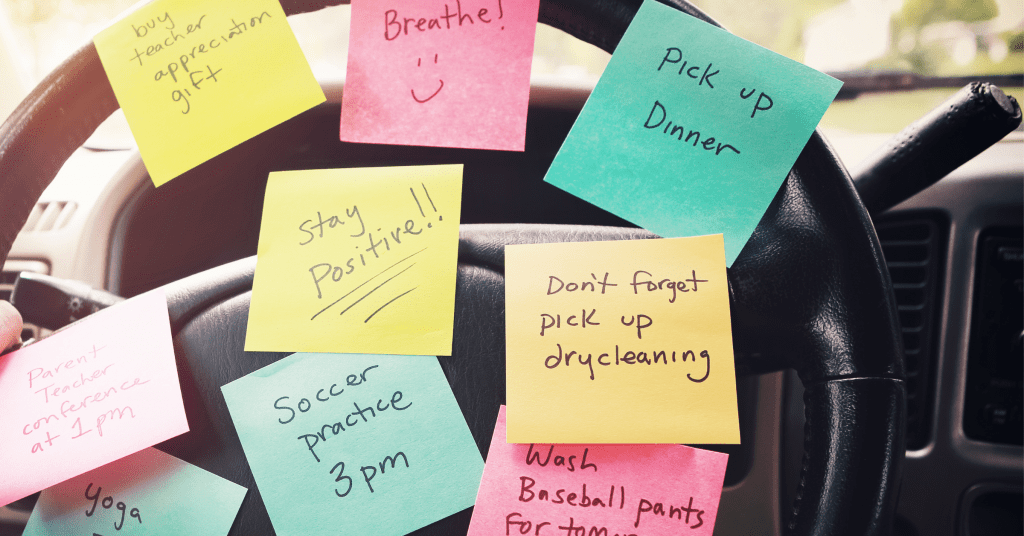 buy
teacher
appreciation
gift
Breathe!
Pick up
Dinner
Stay
Positive!!
Don't forget
pick up
drycleaning
Parent
Teacher
conference
at 1pm
Soccer
practice
3pm
Yoga
Wash
Baseball pants
for